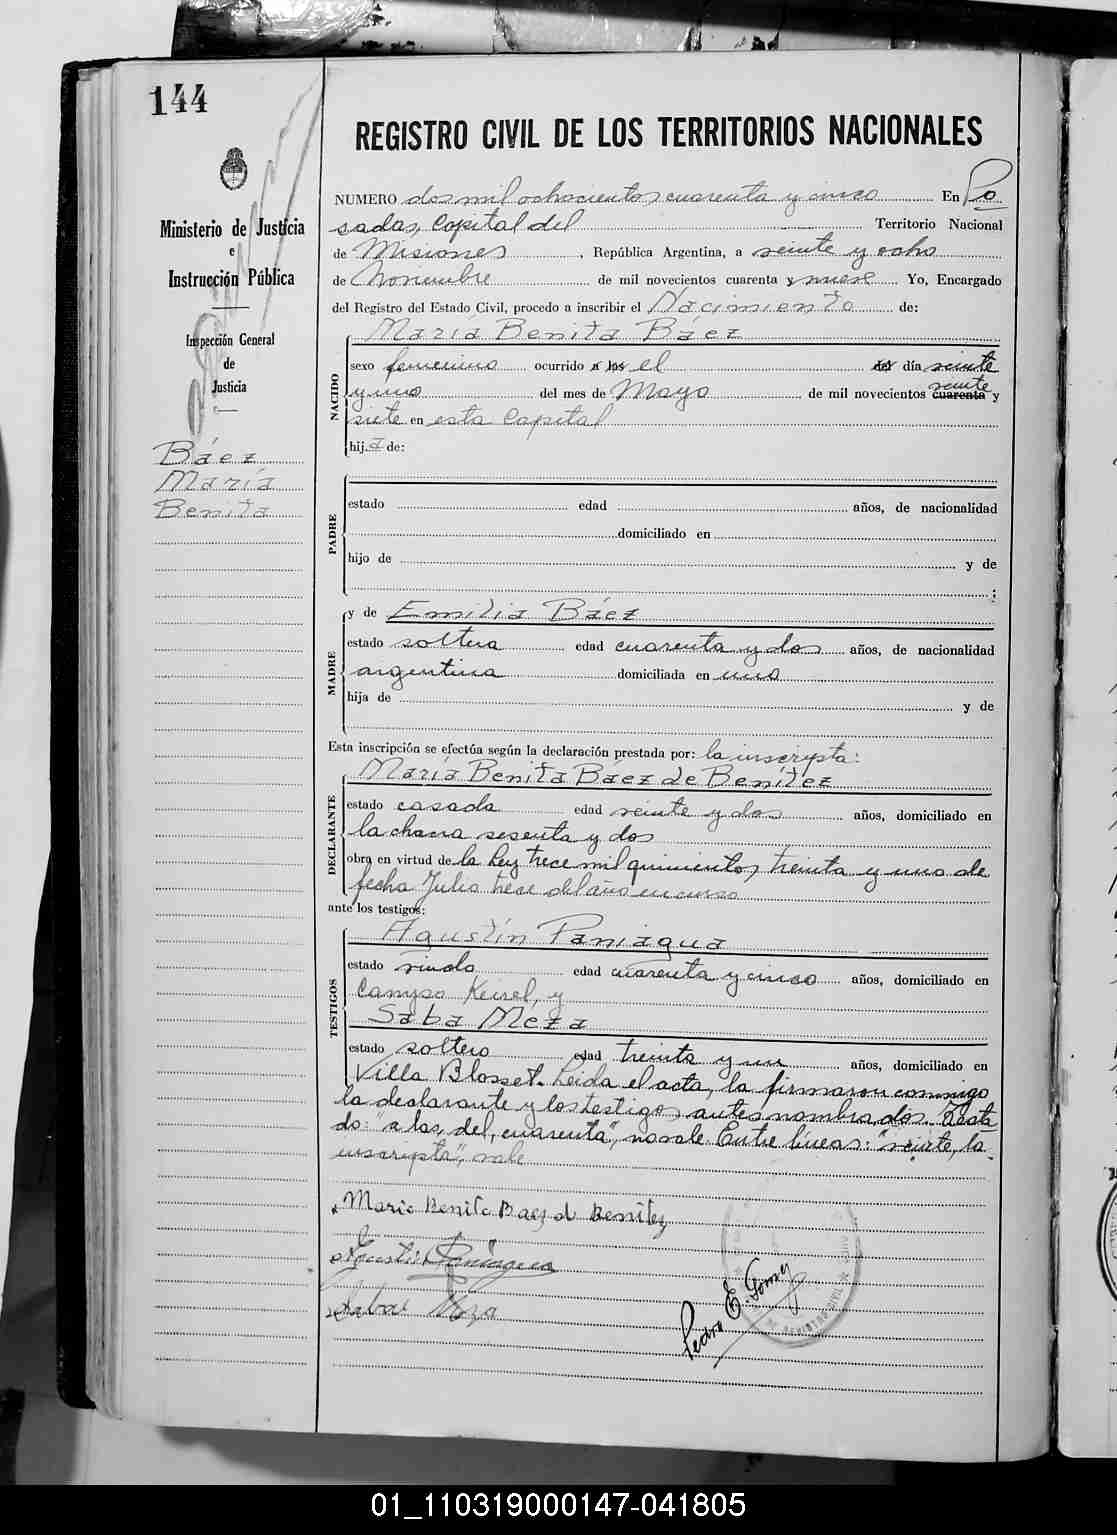 144
REGISTRO CIVIL DE LOS TERRITORIOS NACIONALES
Ministerio de Justicia
e
Instrucción Pública
Inspección General
de
Justicia
Báez
María
Benita
NUMERO dos mil ochocientos cuarenta y cinco En Po
sadas, Capital del Territorio Nacional
de Misiones, República Argentina, a veinte y ocho
de Noviembre de mil novecientos cuarenta y nueve Yo, Encargado
del Registro del Estado Civil, procedo a inscribir el Nacimiento de:
María Benita Báez
NACIDO
sexo femenino ocurrido a las el del día veinte
y uno del mes de Mayo de mil novecientos cuarenta veinte y
siete en esta Capital
hija de:
PADRE
estado edad años, de nacionalidad
domiciliado en
hijo de y de
;
MADRE
y de Emilia Báez
estado soltera edad cuarenta y dos años, de nacionalidad
argentina domiciliada en
hija de y de
Esta inscripción se efectúa según la declaración prestada por: la inscripta:
María Benita Baez de Benítez
DECLARANTE
estado casada edad veinte y dos años, domiciliado en
la chacra sesenta y dos
obra en virtud de la Ley trece mil quinientos treinta y uno de
fecha Julio trece del año en curso
ante los testigos:
TESTIGOS
Agustín Paniagua
estado viudo edad cuarenta y cinco años, domiciliado en
y
Saba Meza
estado soltero edad treinta y un años, domiciliado en
Villa Blosset. Leida el acta, la firmaron conmigo
la declarante y los testigos antes nombrados. Testa-
do: "a las, del, cuarenta", no vale. Entre líneas: "veinte, la
inscripta", vale
Maria Benita Baez d Benitez
Agustin Paniagua
Meza
Pedro E. Gomez
01_110319000147-041805